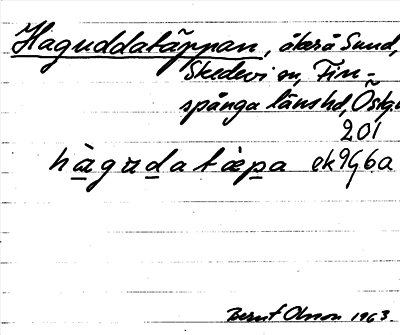 Haguddatäppan, åker å Sund,
Skedevi sn, Fin-
spånga länshd, Östg.
201
hàgudatæpa ek 9G6a
Bernt Olsson 1963.